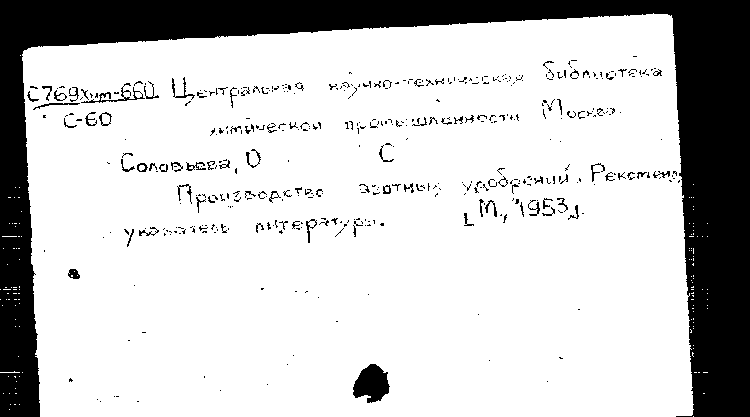 С769хим-660 Центральная научно-техническая библиотека
С-60 химической промышленности Москва.
Соловьева, О С
Производство азотных удобрений. Рекоменд.
указатель литературы. [М., 1953].